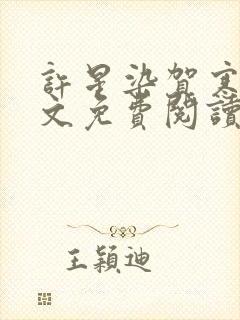 許星染賀寒
文免費閱讀
王穎迪